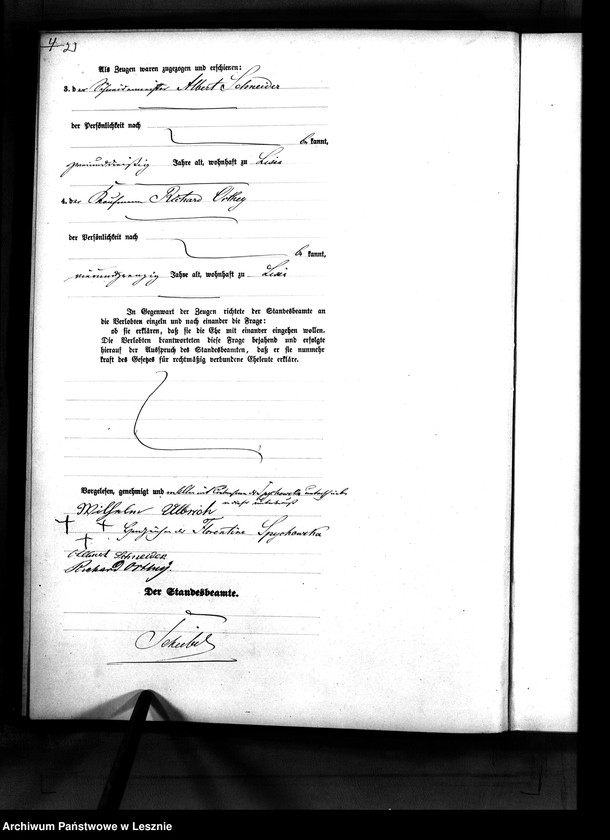 4
23
Als Zeugen waren zugezogen und erschienen:
3. der Schneidermeister Albert Schneider
der Persönlichkeit nach
be kannt,
zweiunddreißig Jahre alt, wohnhaft zu Lissa
4. der Kaufmann Richard
der Persönlichkeit nach
be kannt,
vierundzwanzig Jahre alt, wohnhaft zu Lissa
In Gegenwart der Zeugen richtete der Standesbeamte an
die Verlobten einzeln und nach einander die Frage:
ob sie erklären, daß sie die Ehe mit einander eingehen wollen.
Die Verlobten beantworteten diese Frage bejahend und erfolgte
hierauf der Ausspruch des Standesbeamten, daß er sie nunmehr
kraft des Gesetzes für rechtmäßig verbundene Eheleute erkläre.
Vorgelesen, genehmigt und von Allen mit Ausnahme der Spychowska unterschrieben
Wilhelm Ulbrich
Handzeichen der Florentine Spychowska
Albert Schneider
Richard
Der Standesbeamte.
Scheibel
Archiwum Państwowe w Lesznie